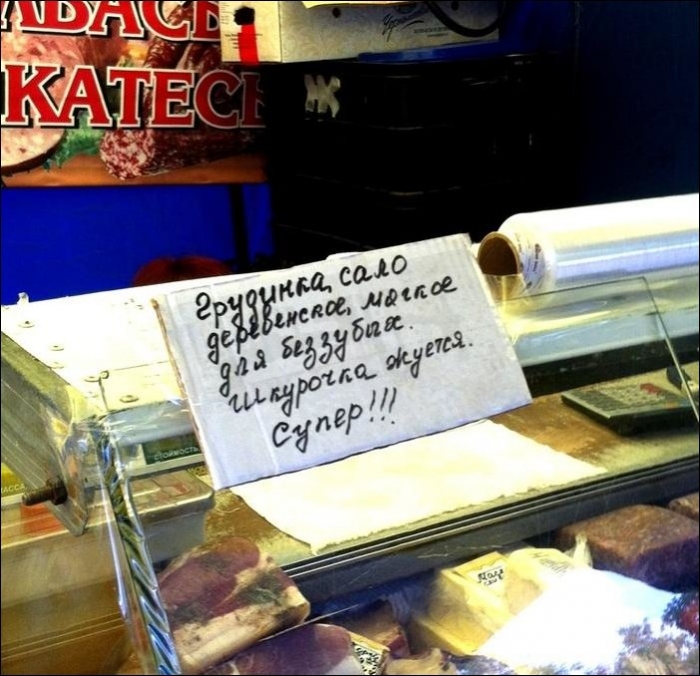 ЛБАСЫ
КАТЕСЫ
Ж
Грудинка, сало
деревенское, мягкое
для беззубых.
Шкурочка жуется.
Супер!!!
СТОИМОСТЬ
МАССА